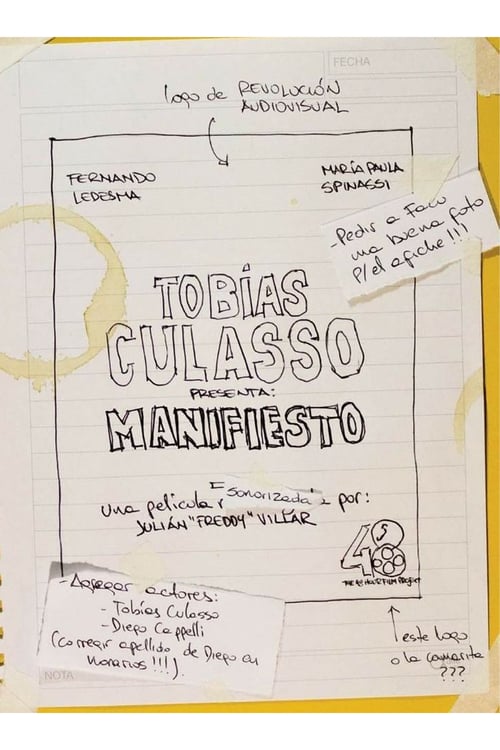 FECHA
logo de REVOLUCIÓN
AUDIOVISUAL
FERNANDO
LEDESMA
MARÍA PAULA
SPINASSI
-Pedir a Facu
una buena foto
p/el afiche!!!
TOBÍAS
CULASSO
PRESENTA:
MANIFIESTO
Una película sonorizada por:
JULIÁN "FREDDY" VILLAR
48
THE 48 HOUR FILM PROJECT
-Agregar actores:
- Tobías Culasso
- Diego Cappelli
(corregir apellido de Diego en
horarios!!!).
este logo
o la camarita
???
NOTA